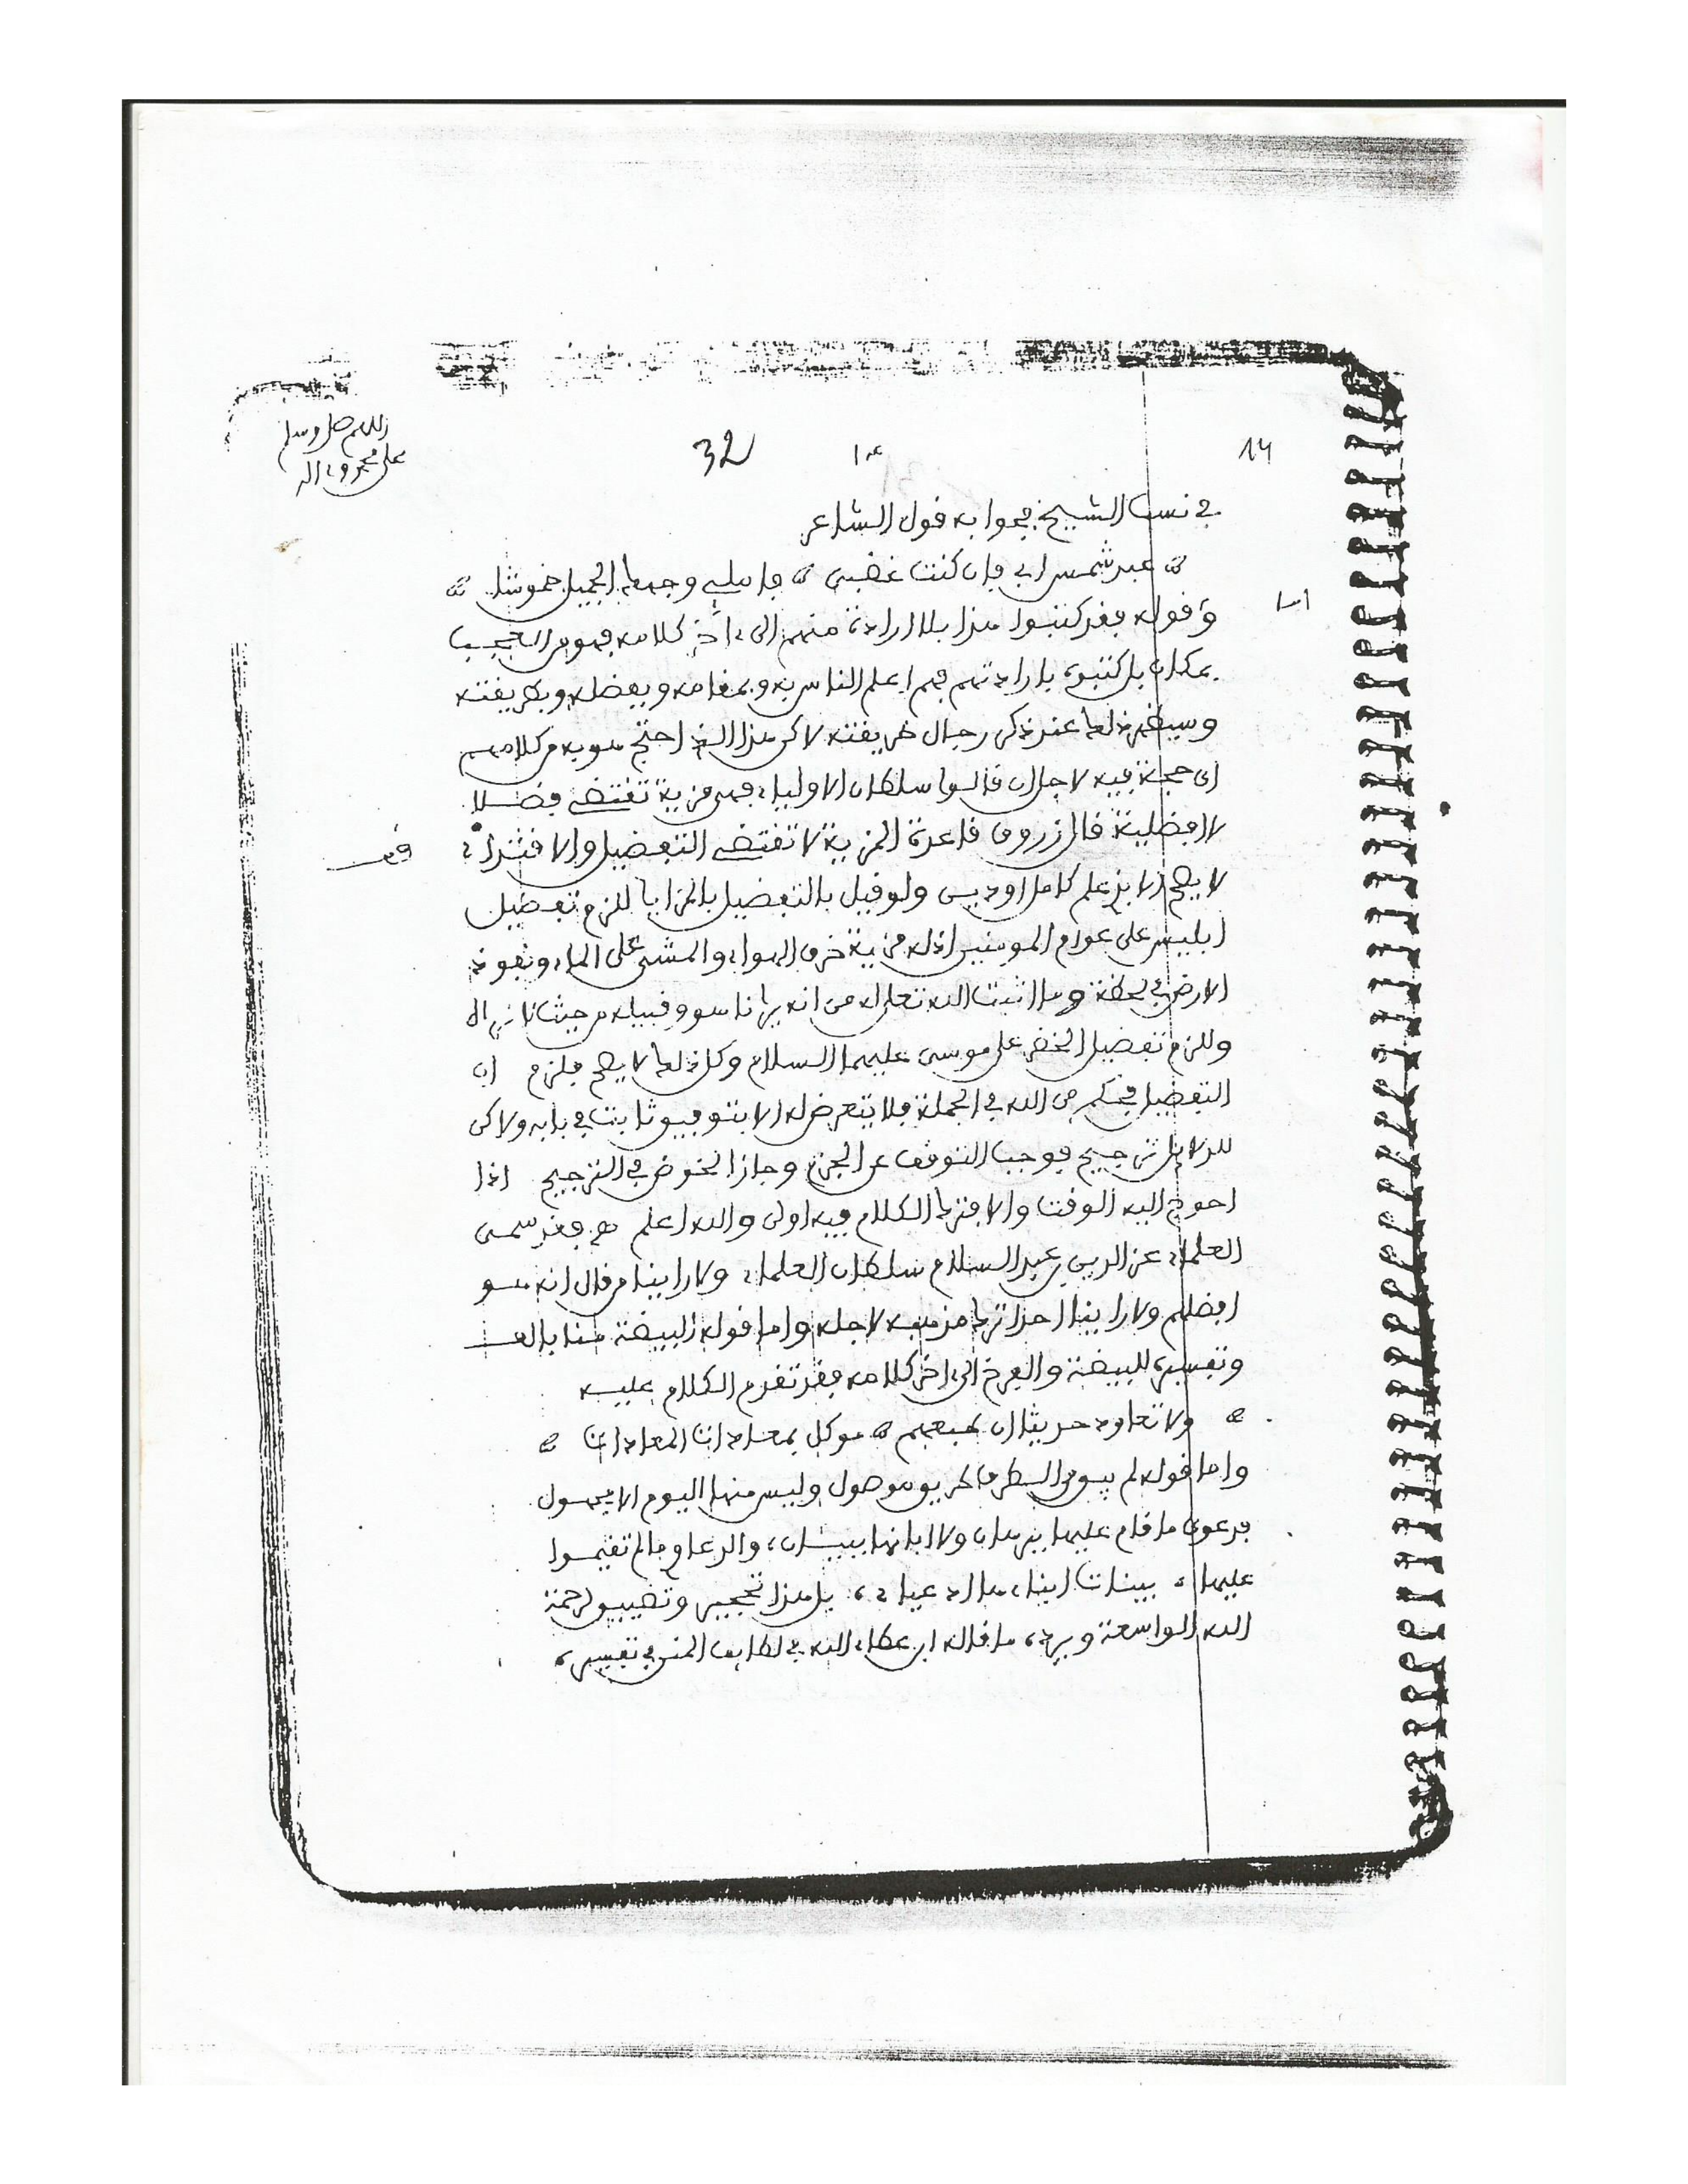 اللهم صل وسلم
على محمد وءاله
14
32
في نسب الشيخ فجوابه قول الشاعر
عبد شمس ابي فإن كنت غضبى فاملئي وجهك الجميل خموشا
اما
وقوله فقد كتبوا هذا بلا ارادة منهم الى ءاخر كلامه فهو من العجب
بمكان بل كتبوه بارادتهم فهم اعلم الناس به وبمقامه وبفضله وبطريقته
وسيظهر ذلك عند ذكر رجال طريقته لاكن هذا الذي احتج هو به من كلامهم
اي حجة فيه لاجل ان قالوا سلطان الاولياء فهي مزية تقتضي فضلا
لا افضلية قال زروق قاعدة المزية لا تقتضي التفضيل والاقتداء
قف
لا يصح الا بذي علم كامل او دين ولو قيل بالتفضيل بالمزايا للزم تفضيل
ابليس على عوام المومنين اذ له مزية خرق الهواء والمشي على الماء ونفوذ
الارض في لحظة وما اثبت الله تعالى له من انه يرانا هو وقبيله من حيث لا نراه
وللزم تفضيل الخضر على موسى عليهما السلام وكل ذلك لا يصح فلزم ان
التفضيل بحكم من الله في الجملة فلا يتعرض له الا بتوقيف ثابت في بابه ولاكن
للدلائل ترجيح فوجب التوقف عن الجزم وجاز الخوض في الترجيح اذا
احوج اليه الوقت والا فترك الكلام فيه اولى والله اعلم هـ فقد سمى
العلماء عز الدين بن عبد السلام سلطان العلماء ولا راينا من قال انه هو
افضلهم ولا راينا احدا ترك مذهبه لاجله واما قوله البيضة هنا بالف
وتفسيره للبيضة والفرخ الى اخر كلامه فقد تقدم الكلام عليه
ولا تعاود حديثا ان طبعهم موكل بمعادات المعادات
واما قوله لم يبق من الطرق طريق موصول وليس منها اليوم الا مجهول
فدعوى ما قام عليها برهان ولا ابانها بيان، والدعاوي ما لم تقيموا
عليها، بينات ابناءها ادعياء، بل هذا تحجير وتضييق لرحمة
الله الواسعة ويرده ما قاله ابن عطاء الله في لطايف المنن في تفسيره